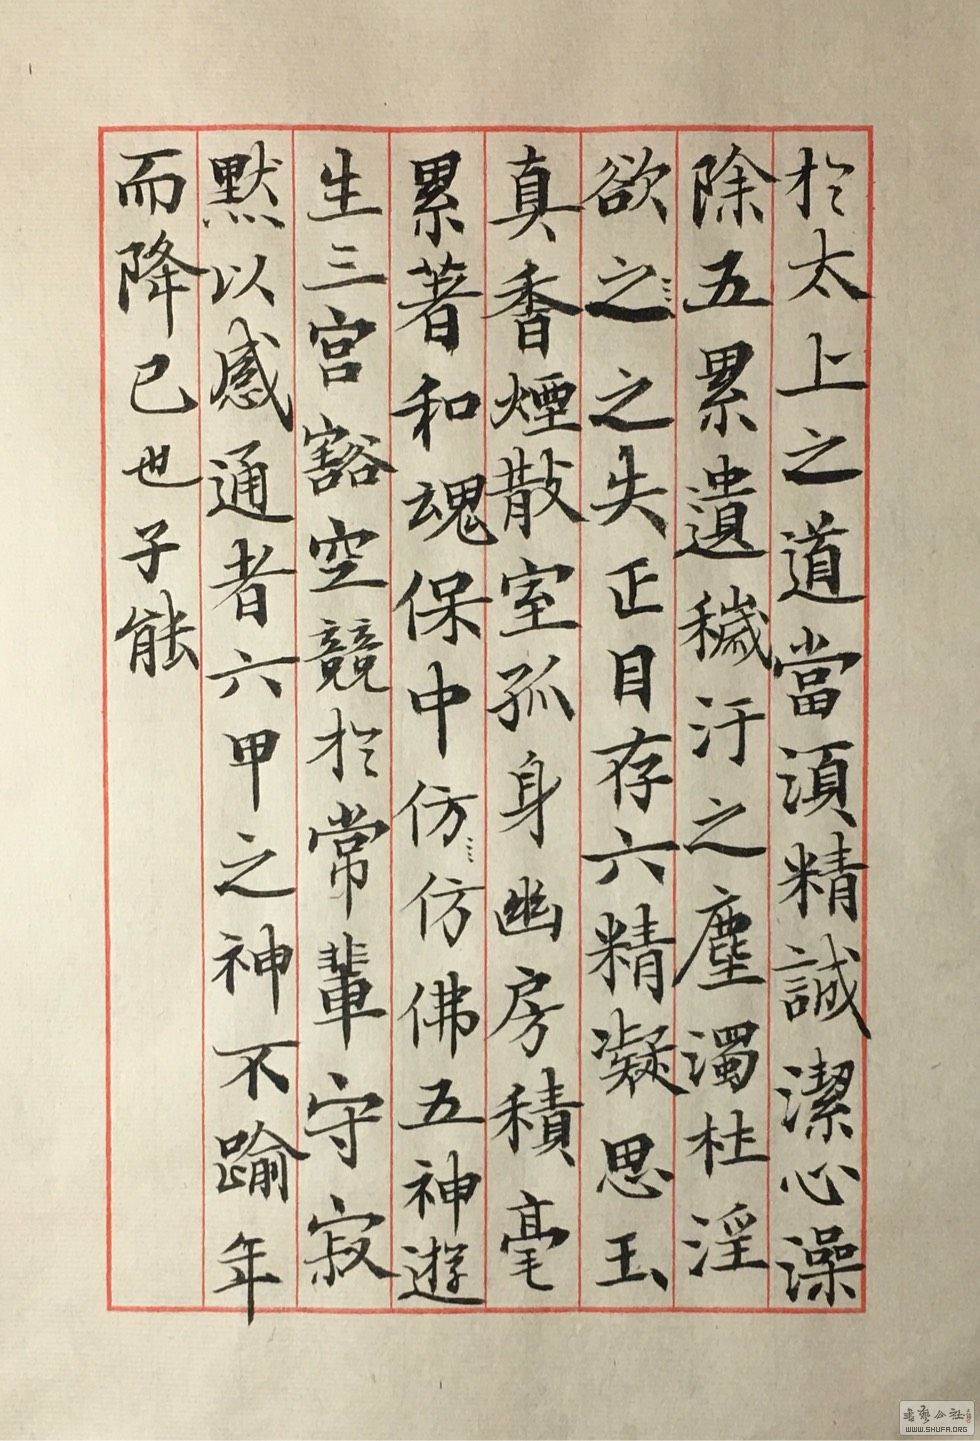 於太上之道當須精誠潔心澡
除五累遺穢汙之塵濁杜淫
欲之之失正目存六精凝思玉
真香煙散室孤身幽房積毫
累著和魂保中仿仿佛五神遊
生三宮豁空競於常輩守寂
默以感通者六甲之神不踰年
而降已也子能
書藝公社
WWW.SHUFA.ORG